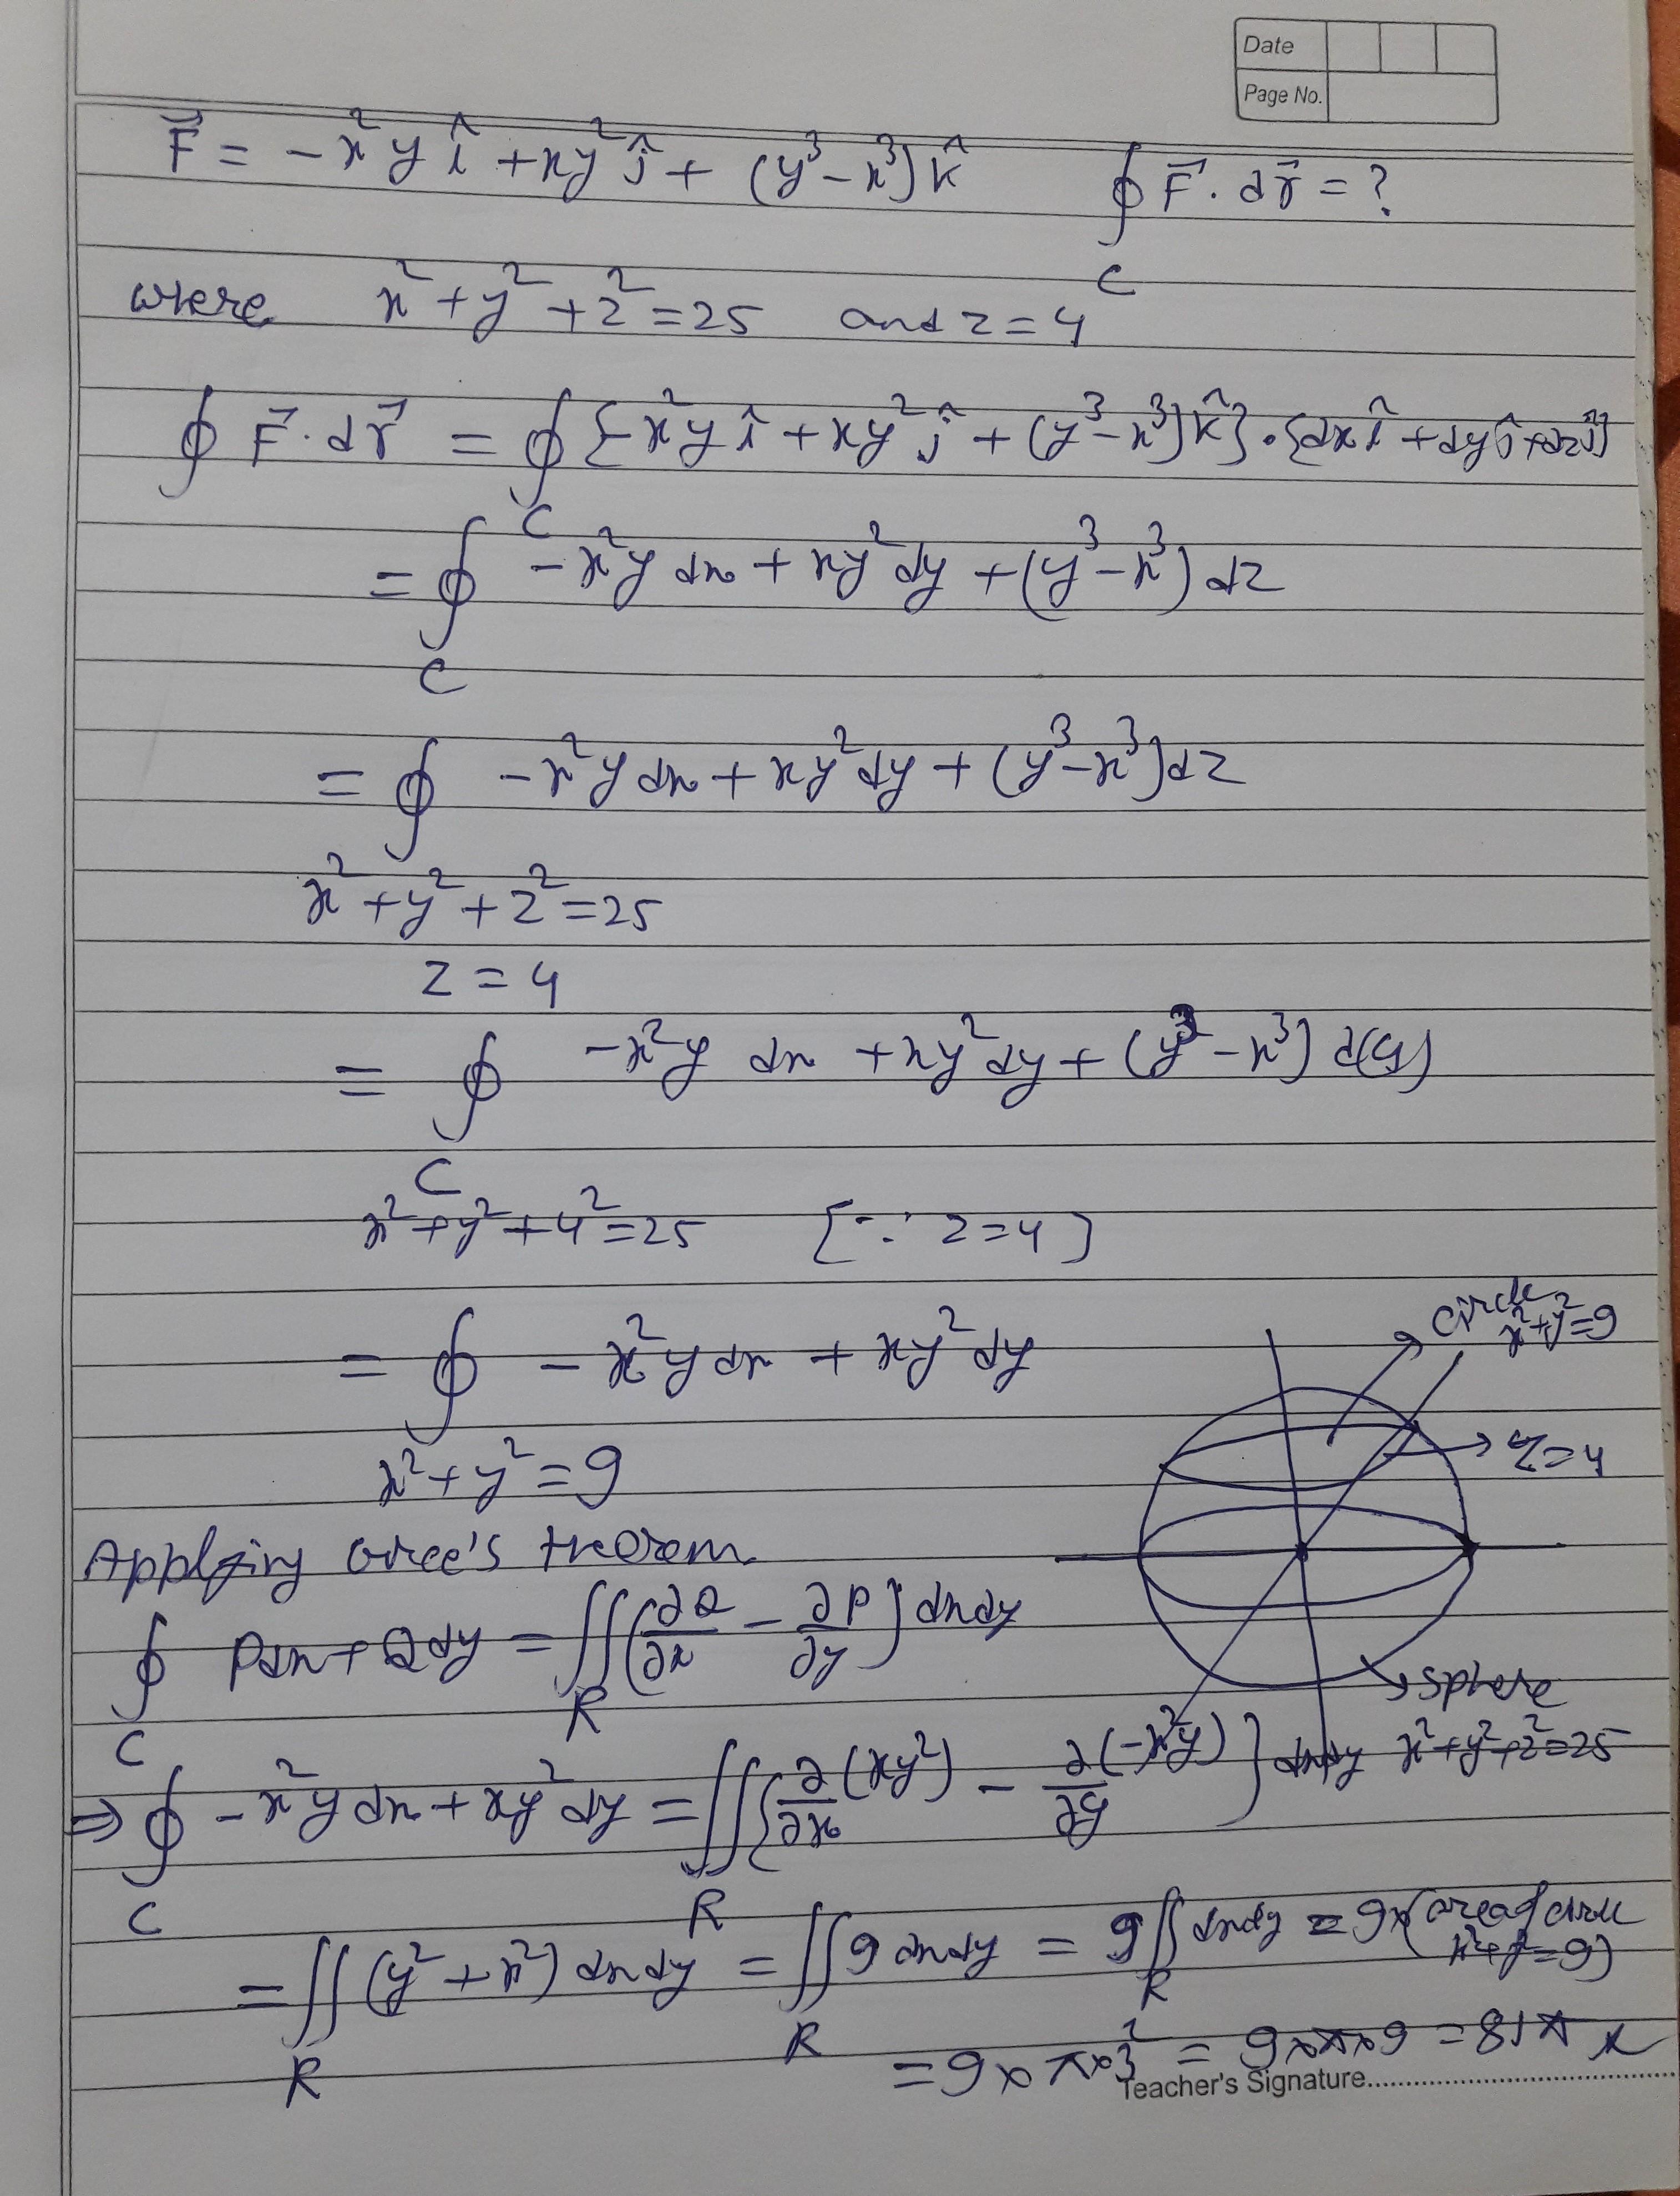 Date
Page No.
F⃗ = -x²y î + xy² ĵ + (y³-x³) k̂    ∮_C F⃗ . dr⃗ = ?
where x²+y²+z²=25 and z=4
∮ F⃗ . dr⃗ = ∮_C {-x²y î + xy² ĵ + (y³-x³) k̂} . {dx î + dy ĵ + dz
= ∮_C -x²y dx + xy² dy + (y³-x³) dz
= ∮ -x²y dx + xy² dy + (y³-x³) dz
x²+y²+z²=25
z=4
= ∮ -x²y dx + xy² dy + (y³-x³) d(4)
C
x²+y²+4²=25 [∵ z=4]
= ∮ -x²y dx + xy² dy
x²+y²=9
circle
x²+y²=9
z=4
sphere
x²+y²+z²=25
Applying theorem
∮_C Pdx + Qdy = ∬_R (∂Q/∂x - ∂P/∂y) dxdy
⇒ ∮_C -x²y dx + xy² dy = ∬_R {∂/∂x (xy²) - ∂/∂y (-x²y)} dxdy
= ∬_R (y²+x²) dxdy = ∬_R 9 dxdy = 9∬_R dxdy = 9×(area of circle
x²+y²=9)
= 9×π×3² = 9×π×9 = 81π
Teacher's Signature